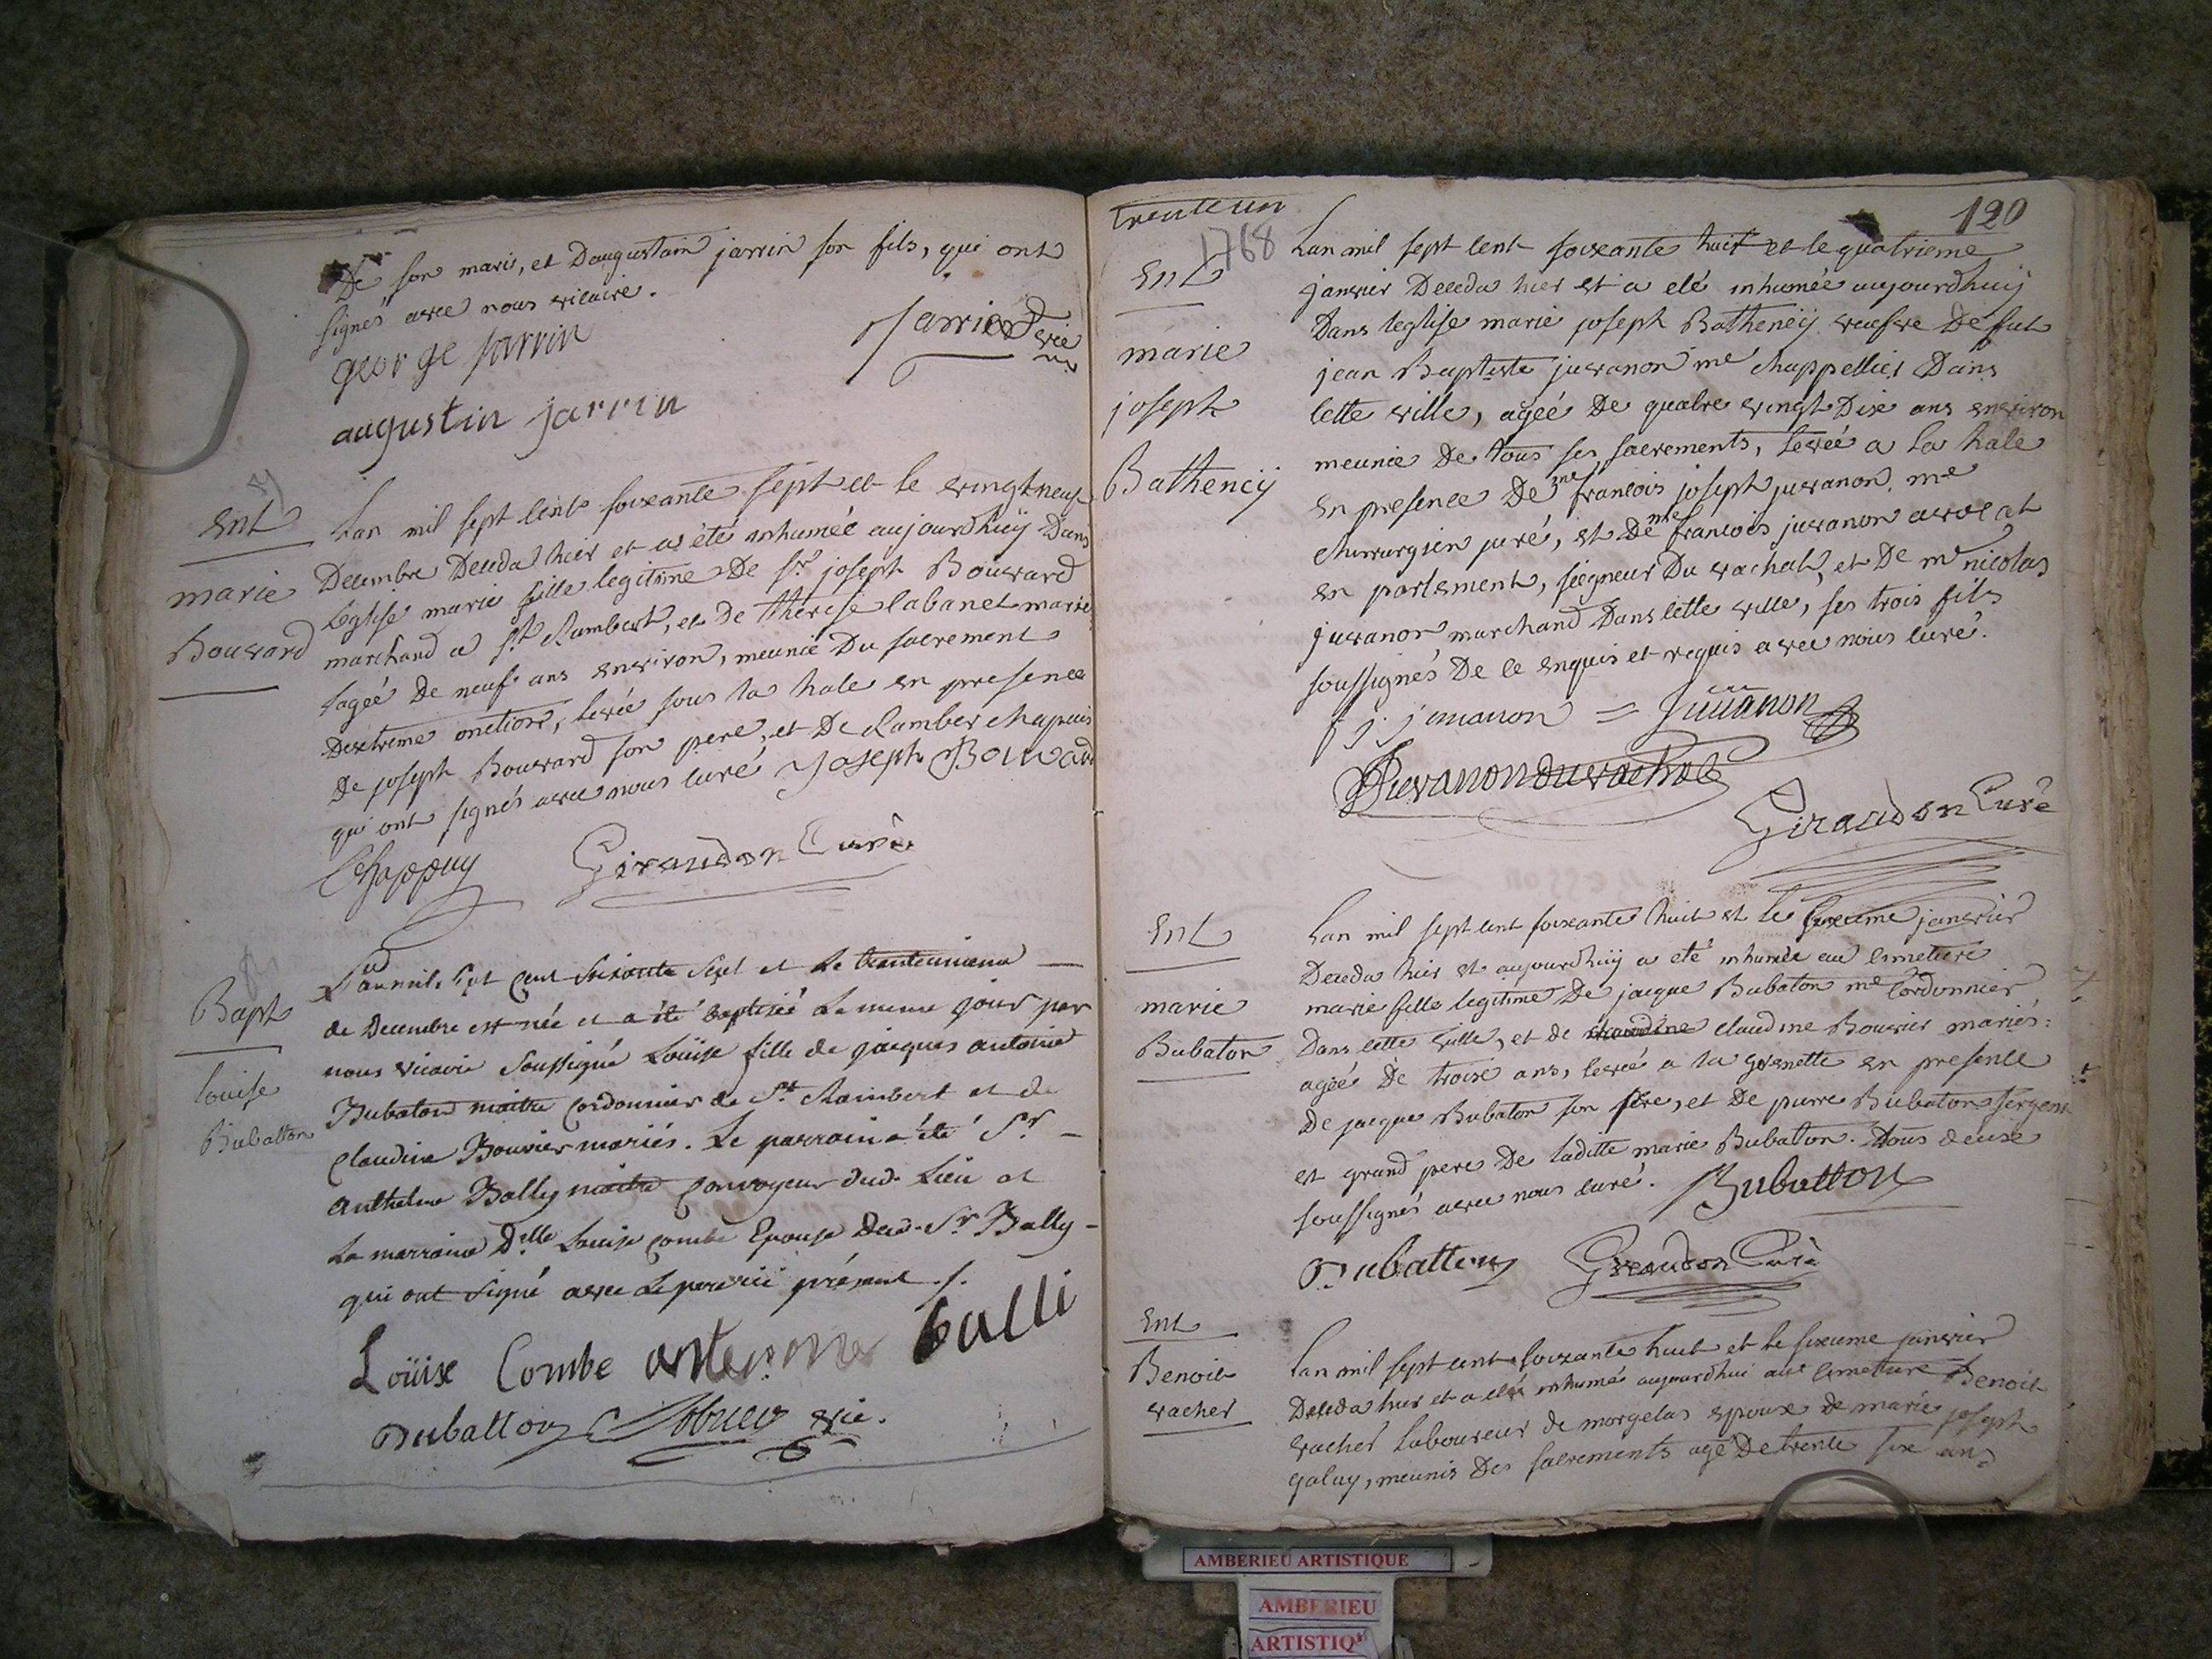 De son maris, et Daugustain jarrin son fils, qui ont
signés avec nous vicaire.
george jarrin
augustin jarrin
Ent
marie
Bouvard
Lan mil sept cent soixante sept et le vingt neuf
Decembre Deceda hier et a été inhumée aujourdhuij Dans
leglise marie fille legitime De Sr. joseph Bouvard
marchand a St. Rambert, et de therese labanet mariés
agée De neuf ans environ, meunie Du sacrement
Dextreme onction, levée sous la hale en presence
De joseph Bouvard son pere, et De Ramber chapuis
qui ont signés avec nous curé joseph Bouvard
Chappuy Giraudon Curé
Bapt
louise
Dubatton
L'an mil Sept Cent Soixante Sept et le trenteunieme
de Decembre est née et a été baptisée le meme jour par
nous vicaire Soussigné Loüise fille de jacques antoine
Dubaton maitre Cordonnier de St. Rambert et de
Claudine Bouvier mariés. Le parrain a été Sr.
anthelme Bally maitre Convoyeur dud. Lieu et
La marraine Delle Louise Combe Epouse Dud. Sr. Bally
qui ont Signé avec le pere ici présent ./.
Loüise Combe balli
Dubatton vic.
trente un
1768
120
Ent
marie
joseph
Batheneij
Lan mil sept cent soixante huit et le quatrieme
janvier Deceda hier et a eté inhumée aujourdhuij
Dans leglise marie joseph Batheneij veufve De fut
jean Baptiste juvanon me chappellier Dans
cette ville, agée De quatre vingt Dix ans environ
meunie De tous ses sacrements, levée a la hale
en presence De me francois joseph juvanon me
chirurgien juré, et De me francois juvanon avocat
en parlement, seigneur Du vachat, et De me nicolas
juvanon marchand Dans cette ville, ses trois fils
soussignés De ce enquis et requis avec nous curé.
f j juvanon = Juvanon
Juvanon du vachat
Giraudon Curé
Ent
marie
Bubaton
Lan mil sept cent soixante huit et le sixieme janvier
Deceda hier et aujourdhuij a eté inhumée au cimetiere
marie fille legitime De jacque Bubaton me Cordonnier
Dans cette ville, et de claudine Bouvier mariés
agée De trois ans, levée a la grenette en presence
De jacque Bubaton son pere, et De pierre Bubaton sergent
et grand pere De laditte marie Bubaton. tous deux
soussignés avec nous curé. Dubatton
Dubatton Giraudon Curé
Ent
Benoit
vacher
Lan mil sept cent soixante huit et le sixieme janvier
Deceda hier et a eté inhumé aujourdhui au cimetiere Benoit
vacher laboureur de morgelas epoux de marie joseph
galuy, meunis Des sacrements agé De trente six ans
AMBERIEU ARTISTIQUE
AMBERIEU
ARTISTIQ